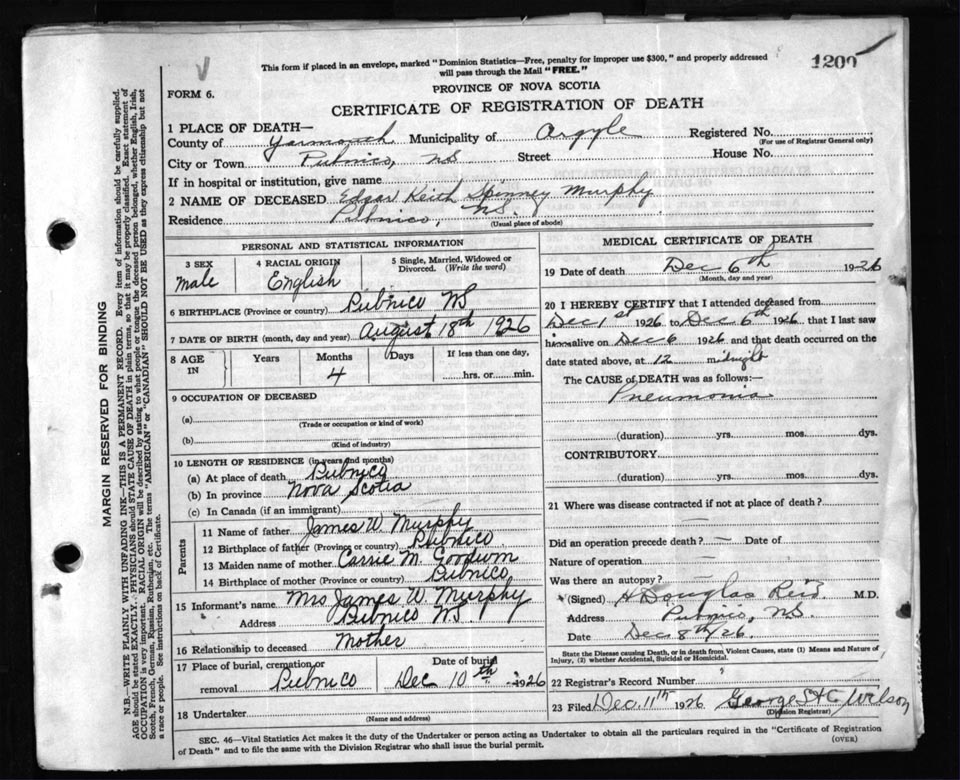 This form if placed in an envelope, marked "Dominion Statistics—Free, penalty for improper use $300," and properly addressed
will pass through the Mail "FREE."
1200
FORM 6.
PROVINCE OF NOVA SCOTIA
CERTIFICATE OF REGISTRATION OF DEATH
1 PLACE OF DEATH—
County of Yarmouth Municipality of Argyle Registered No.
(For use of Registrar General only)
City or Town Pubnico, NS Street House No.
If in hospital or institution, give name
2 NAME OF DECEASED Edgar Keith Spinney Murphy
Residence Pubnico, NS.
(Usual place of abode)
PERSONAL AND STATISTICAL INFORMATION
3 SEX
male
4 RACIAL ORIGIN
English
5 Single, Married, Widowed or
Divorced. (Write the word)
6 BIRTHPLACE (Province or country) Pubnico NS
7 DATE OF BIRTH (month, day and year) August 18th 1926
8 AGE
IN
Years
Months
4
Days
If less than one day,
hrs. or min.
9 OCCUPATION OF DECEASED
(a)
(Trade or occupation or kind of work)
(b)
(Kind of industry)
10 LENGTH OF RESIDENCE (in years and months)
(a) At place of death Pubnico
(b) In province Nova Scotia
(c) In Canada (if an immigrant)
Parents
11 Name of father James W. Murphy
12 Birthplace of father (Province or country) Pubnico
13 Maiden name of mother Carrie M. Goodwin
14 Birthplace of mother (Province or country) Pubnico
15 Informant's name Mrs James W. Murphy
Address Pubnico N.S.
16 Relationship to deceased Mother
17 Place of burial, cremation or
removal Pubnico
Date of burial
Dec 10th 1926
18 Undertaker
(Name and address)
MEDICAL CERTIFICATE OF DEATH
19 Date of death Dec 6th 1926
(Month, day and year)
20 I HEREBY CERTIFY that I attended deceased from
Dec 1st 1926 to Dec 6th 1926 that I last saw
him alive on Dec 6 1926 and that death occurred on the
date stated above, at 12 midnight
The CAUSE of DEATH was as follows:—
Pneumonia
(duration) yrs. mos. dys.
CONTRIBUTORY
(duration) yrs. mos. dys.
21 Where was disease contracted if not at place of death?
Did an operation precede death? — Date of
Nature of operation —
Was there an autopsy? —
(Signed) H Douglas Reid M.D.
Address Pubnico, NS.
Date Dec 8th/26.
State the Disease causing Death, or in death from Violent Causes, state (1) Means and Nature of
Injury, (2) whether Accidental, Suicidal or Homicidal.
22 Registrar's Record Number
23 Filed Dec. 11th 1926 George H C Wilson
(Division Registrar)
SEC. 46—Vital Statistics Act makes it the duty of the Undertaker or person acting as Undertaker to obtain all the particulars required in the "Certificate of Registration
of Death" and to file the same with the Division Registrar who shall issue the burial permit.
(OVER)
MARGIN RESERVED FOR BINDING
N.B.—WRITE PLAINLY WITH UNFADING INK—THIS IS A PERMANENT RECORD. Every item of information should be carefully supplied.
AGE should be stated EXACTLY. PHYSICIANS should STATE CAUSE OF DEATH in plain terms, so that it may be properly classified. Exact statement of
OCCUPATION is very important. RACIAL ORIGIN will be described by stating to what people or tongue the deceased person belonged, whether English, Irish,
Scotch, French, German, Russian, Ruthenian, etc. The terms "AMERICAN" or "CANADIAN" SHOULD NOT BE USED as they express citizenship but not
a race or people. See instructions on back of Certificate.